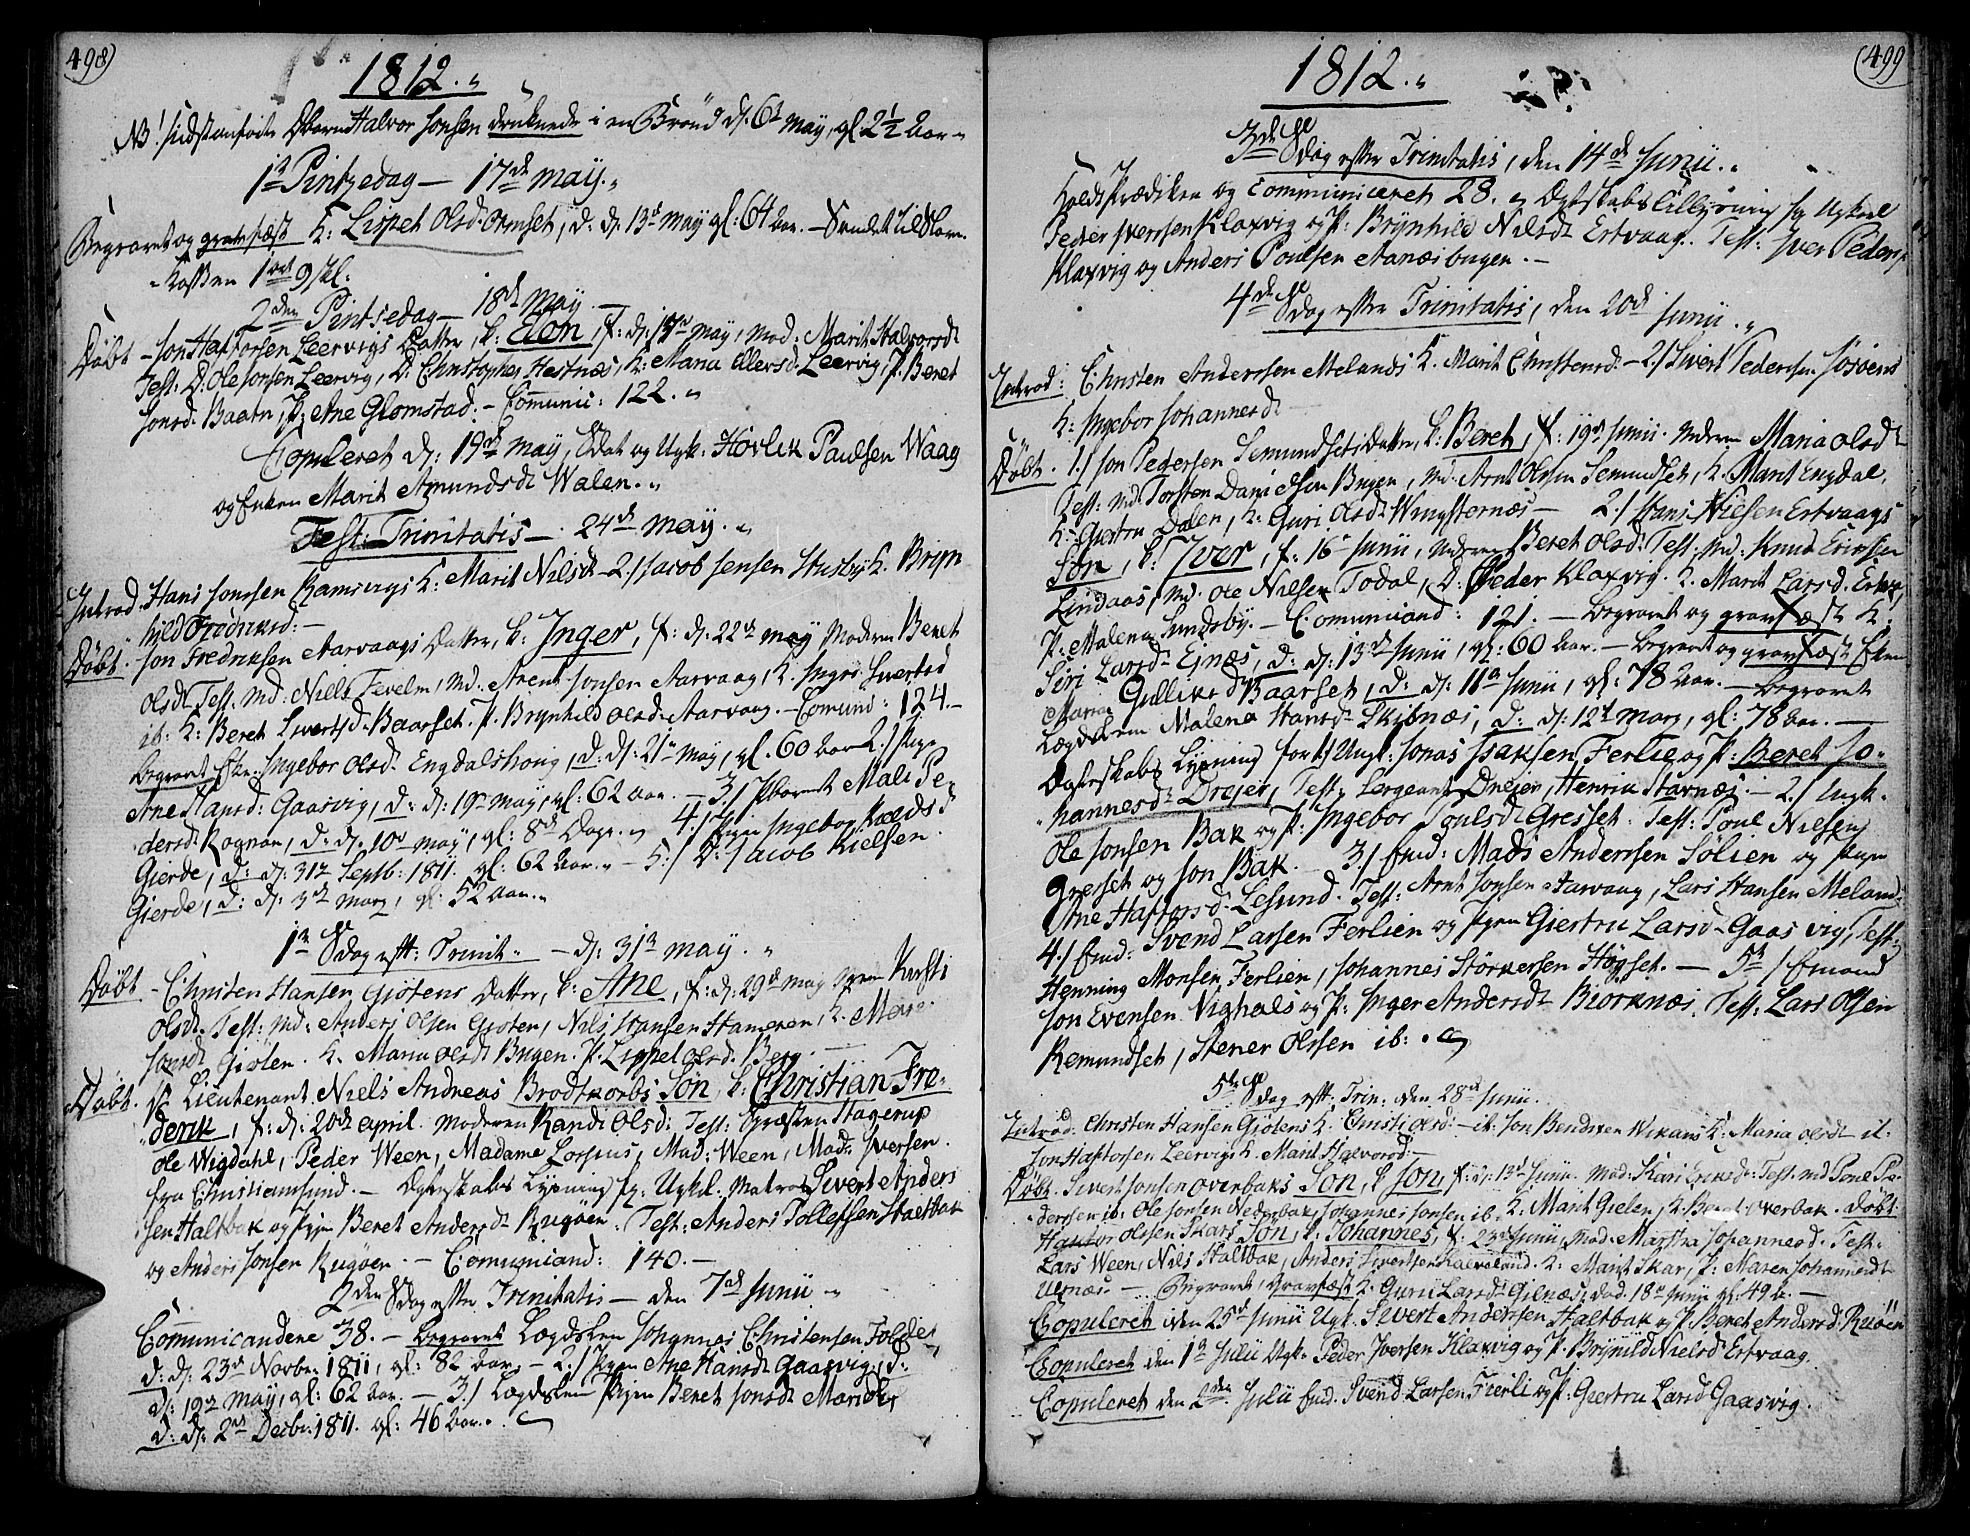 498)
1812.
NB! sidstanførte Dbarn Halvor Jonsen druknede i en Brønd d: 6t May, gl 2 1/2 Aar.
1te Pintzedag — 17de May.
Begravet og gravfæst K: Lispet Olsd. Ormset, d: d: 13de May gl: 64 Aar. — Sendt til Skole-
Kassen 1 ort 9 skl:
2den Pintsedag — 18de May.
Døbt — Jon Haftorsen Leervigs Datter, k: Elen, f: d: 17de May, Mod: Marit Halvorsdt
Test: D: Ole Jonsen Leervig, D: Christopher Hestnæs, K: Maria Ellevsd. Leervig, P: Beret
Jonsd: Baatn, P: Ane Glomstad. — Comunic: 122.
Copuleret d: 19de May, Sdat og Ugk: Hovlek Paulsen Waag
og Enken Marit Amundsdt Walen.
Fest: Trinitatis — 24de May.
Introd. Hans Jonsen Ramsvigs K: Marit Nilsd — 2./ Jacob Jensen Husbys K. Bryn
hild Fredriksd: —
Døbt. Jon Fredriksen Aarvaags Datter, k: Inger, f: d: 22de May Moderen Beret
Olsdt Test: Md: Niels Fevelm, Md: Arent Jonsen Aarvaag, K. Ingri Sivertsd
ib: K: Beret Sivertsd. Baarset. P. Brynhild Olsd. Aarvaag. — Comund: 124. —
Begravet Eke: Ingebor Olsd. Engdalshoug, d: d: 21de May, gl. 60 Aar 2./ Pige
Ane Hansd: Gaasvig, d: d: 19de May, gl: 62 Aar. — 3./ Pbarnet Mali Pe-
dersd: Rognan, d: d: 10de May, gl: 8te Dage. 4./ Pigen Ingebor
Gierde, d: d: 31te Septb: 1811. gl: 62 Aar. — 5./ D: Jacob Kielsen
Gierde, d: d: 3de Marz, gl: 52 Aar.
1te Sdag eft: Trinit. — d: 31te May.
Døbt — Christen Hansen Giølens Datter, k: Ane, f: d: 29de May Moderen Kirsti
Olsdt. Test: Md: Anders Olsen Giøten, Nils Hansen Hameren, K. Mare
Jonsdt Giølen. K. Maria Olsdt Bugen. P. Lippel Olsd. Berg. —
Døbt. Hr Lieutenant Niels Andreas Brodtkorbs Søn, k: Christian Fre-
derik, f: d: 20de April. Moderen Randi Olsd: Test: Hr Præsten Hagerup
Ole Wigdahl, Peder Ween, Madame Lossius, Mad: Ween, Mad: Iversen
fra Christiansund. — Ægteskabs Lysning for: Ugkl. Matros Sivert Anders
sen Haltbak og Pigen Beret Andersdt Rugøen. Test: Anders Tollefsen Haltbak
og Anders Jonsen Rugøen. — Comuniand: 140. —
2den Sdag efter Trinitatis — den 7de Junii
Communicandene 38. — Begravet Lægdslem Johannes Christensen Folde
d: d: 23de Novbr: 1811, gl: 82 Aar, — 2./ Pigen Ane Hansdt Gaasvig, d:
d: 19de May, gl: 62 Aar. — 3./ Lægdslem Pigen Beret Jonsdt
d: d: 2de Decbr: 1811. gl: 46 Aar.
(499
1812.
3de Sdag efter Trinitatis, den 14de Junii.
Holdt Prædiken og Communiceret 28. Ægteskabs Tillysning for Ugkarl
Peder Iversen Klaxvig og P: Brynhild Nilsdt Ertvaag. Test: Iver Peders:
Klaxvig og Anders Poulsen Aanæsbugen. —
4de Sdag efter Trinitatis, den 20de Junii.
Introd: Christen Anderssen Melands K. Marit Christensd. — 2./ Sivert Pedersen
K: Ingebor Johannesdt
Døbt. 1./ Jon Pedersen Semundsets Datter, k: Beret, f: 19de Junii. Moderen Maria Olsdt
Test: Md: Torsten Danielsen Bugen, Md: Arnt Olsen Semundset, K. Marit Engdal,
K: Giertru Dalen, K: Guri Olsdt Wingsternæs — 2./ Hans Nielsen Ertvaags
Søn, k: Iver, f: 16de Junii, Moderen Beret Olsd: Test: Md: Knud Ericksen
Lindaas, Md. Ole Nielsen Todal, D: Peder Klaxvig. K. Marit Larsd.
P: Malena Sundsby. — Comunicand: 121. — Begravet og gravfæst K:
Siri Larsdt Ejnæs, d: d: 13de Junii, gl: 60 Aar. — Begravet og gravfæst Eken
Maria Gulliksd Baarset, d: d: 11te Junii, gl: 78 Aar. — Begravet
Lægdslem Malena Hansdt Skibnæs, d: d: 12te Marz, gl: 78 Aar. —
Ægteskabs Lysning for 1./ Ungk: Jonas Isaksen Ferlie og P: Beret Jo-
hannesdt Drejer, Test: Sergeant Drejer, Henrik Starnæs. — 2./ Ungk.
Ole Jonsen Bak og P: Ingebor Poulsdt Gresset. Test: Poul Nilsen
Gresset og Jon Bak. — 3./ Emd: Mads Anderssen Sølien og Pigen
Ane Haftorsd. Lesund. Test: Arnt Jonsen Aarvaag, Lars Hansen Meland.
4./ Emd: Svend Larsen Ferlien og Pigen Giertru Larsd Gaasvig, Test:
Henning Monsen Ferlien, Johannes Størkersen Høgset. — 5te/ Emand
Jon Evensen Nighals og P: Inger Andersdt Biorknæs. Test: Lars Olsen
Remundset, Stener Olssen ib:
5te Sdag eft. Trin: den 28de Junii.
Introd: Christen Hansen Giølens K: Christi Olsd: — ib: Jon Bendixen Wikans K: Maria Olsdt — ib:
Jon Haftorsen Leervigs K. Marit Halvorsdt —
Døbt. Sivert Jonsen Overbaks Søn, k: Jon, f: d: 13de Junii. Mod: Kari Eriksd: Test: Md Poul Pe-
derssen ib: Ole Jonsen Nederbak, Johannes Jonsen ib: K: Marit Gielen, K. Beret Overbak. Døbt
Olssen Skars Søn, k: Johannes, f: 23de Junii, Mod: Martha Johannesd. Test:
Lars Ween, Nils Haltbak, Anders Sivertsen K: Marit Skar, P: Maren Johannesdt
— Begravet, Gravfæst K: Guru Larsdt Gilnæs, død. 18de Junii gl: 49 A. —
Copuleret den 25de Junii Ugk. Sivert Anderssen Haltbak og P. Beret Andersd. Rugøen
Copuleret den 1te Julii Ugk. Peder Iversen Klaxvig og P. Brynild Nielsdt Ertvaag.
Copuleret den 2den Julii Emd. Svend Larsen Fierli og P: Giertru Larsd Gaasvig.